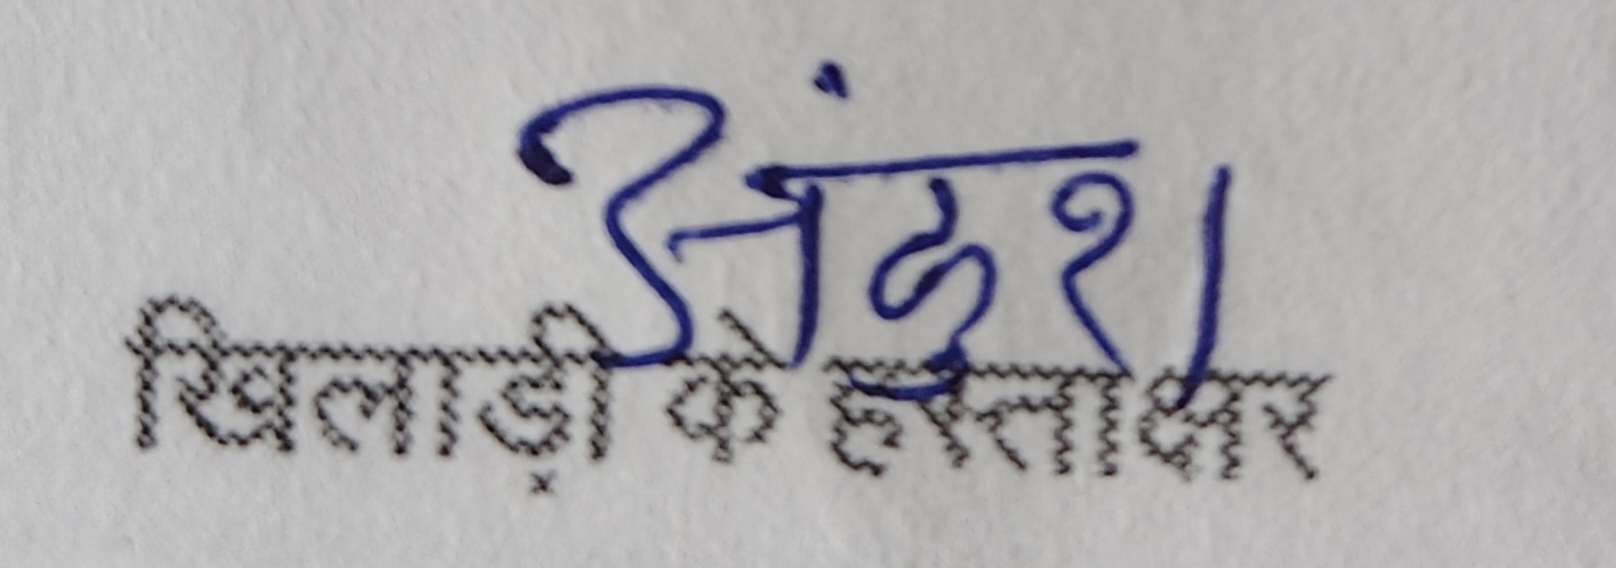 अंकुश
खिलाड़ी के हस्ताक्षर